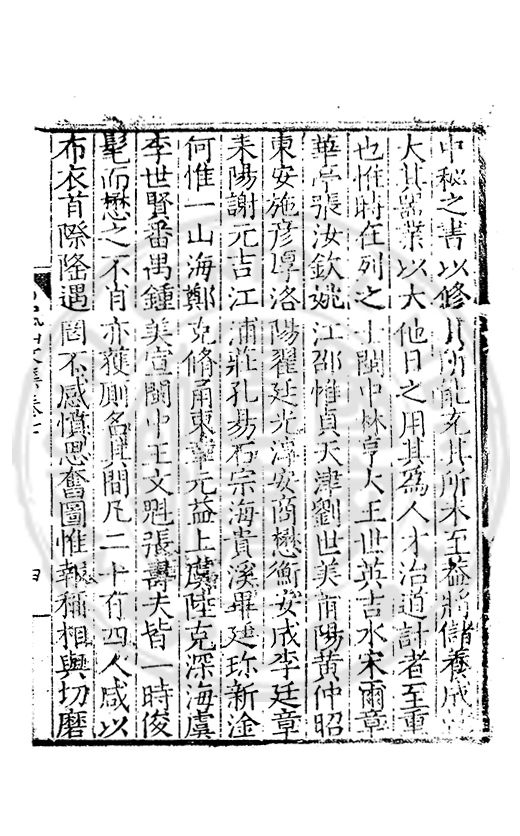 中秘之書以修其所能充其所未至益將儲養成
大其器業以大他日之用其為人才治道計者至重
也惟時在列之士閩中林亨大王世英吉水宋爾章
華亭張汝欽姚江邵惟貞天津劉世美莆陽黃仲昭
東安施彥厚洛陽翟廷光淳安商懋衡安成李廷章
耒陽謝元吉江浦莊孔昜石宗海貴溪畢廷珍新淦
何惟一山海鄭克脩甬東華元益上虞陸克深海虞
李世賢番禺鍾美宣閩中王文魁張壽夫皆一時俊
髦而懋之不肖亦獲廁名其間凡二十有四人咸以
布衣首際隆遇罔不感憤思奮圖惟報稱相與切磨